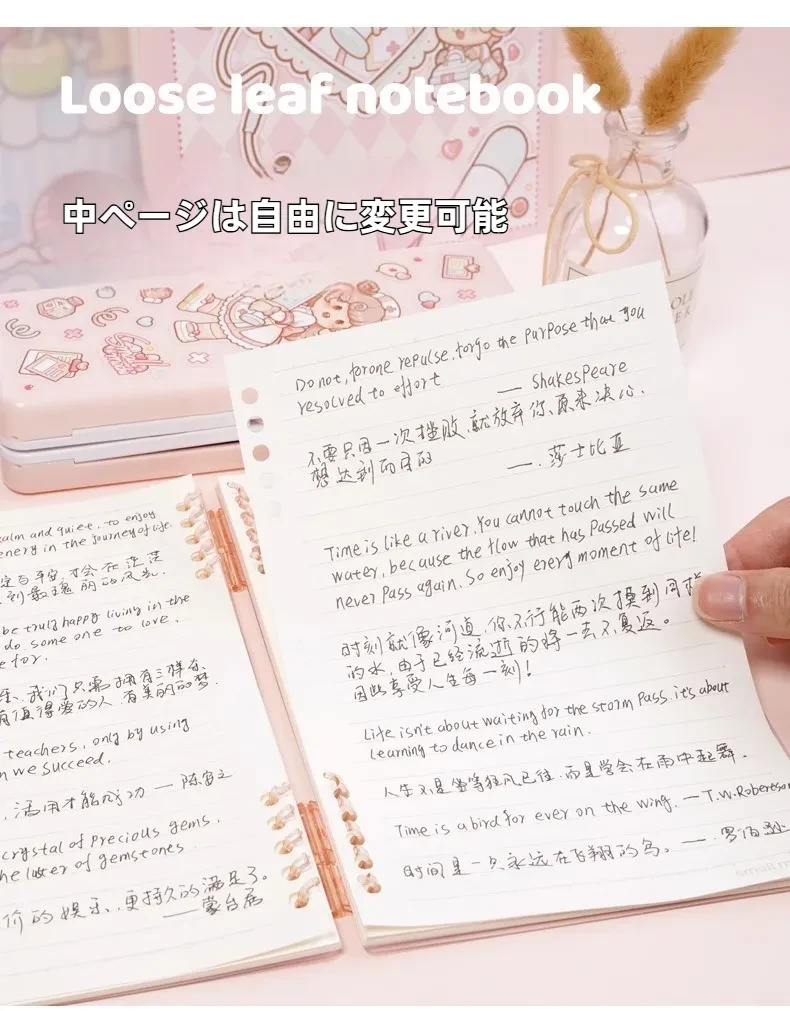 Loose leaf notebook
中ページは自由に変更可能
Do not, for one repulse, forgo the purpose that you
resolved to effort
— Shakespeare
不要只因一次挫败,就放弃你、原来决心
想达到的目的
—.莎士比亚
Time is like a river. You cannot touch the same
water, because the flow that has passed will
never pass again. So enjoy every moment of life!
时刻就像河道,你不行能两次摸到同
的水,由于已经流逝的将一去不复返。
因此享受人生每一刻!
Life isn't about waiting for the storm pass. it's about
learning to dance in the rain.
人生不是坐等狂风已往,而是学会在雨中起舞.
Time is a bird for ever on the wing. — T.W.Robertson
时间是一久永远在飞翔的鸟。—.罗伯逊
calm and quiet, to enjoy
enery in the journey of life.
be truly happy living in the
do, some one to love,
e for.
我们只需拥有三样东
有值得爱的人,有美丽的梦.
teachers, only by using
n we succeed.
活用才能
crystal of precious gems,
he luster of gemstones
价的娱乐、更持久的满足了。
—蒙台居